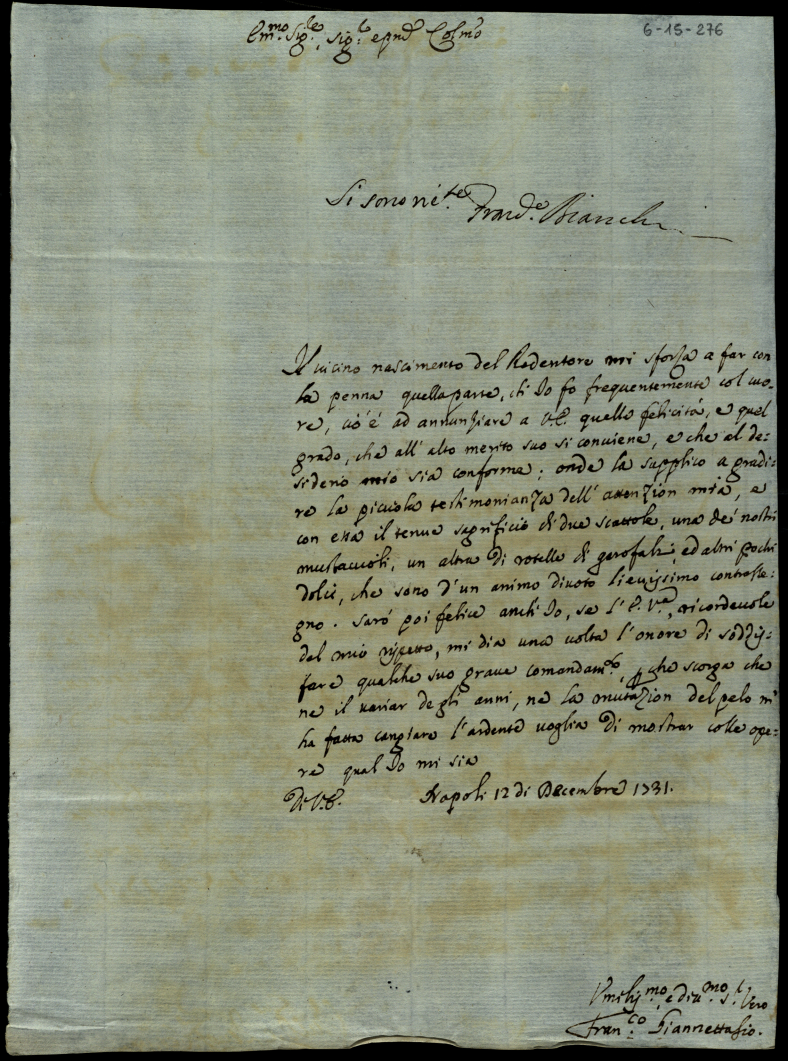 6-15-276
Em.mo Sig.re, Sig.r e pnẽ Colmo
Si sono ric.te
Fran.do Bianchi
Il vicino nascimento del Redentore mi sforza a far con
la penna quella parte, ch'Io fo frequentemente col cuo-
re, cio' è ad annunziare a V.E. quelle felicità, e quel
grado, che all' alto merito suo si conviene, e che al de-
siderio mio sia conforme; onde la supplico a gradi-
re la picciola testimonianza dell' attenzion mia, e
con essa il tenue sagrificio di due scattole, una de' nostri
mustaccioli, un altra di rotelle di garofali, ed altri pochi
dolci, che sono d'un animo divoto lievissimo contrasse-
gno. Sarò poi felice anch' Io, se l'E. V.ra, ricordevole
del mio rispetto, mi dia una volta l'onore di soddis-
fare qualche suo grave comandam.to, p che scorga che
ne il variar degli anni, ne la mutazion del pelo m'
ha fatta cangiare l'ardente voglia di mostrar colle ope-
re qual Io mi sia
Di V.E. Napoli 12 di Decembre 1731.
Umiliss.mo, e div.mo S.r Vero
Fran.co Giannettasio.